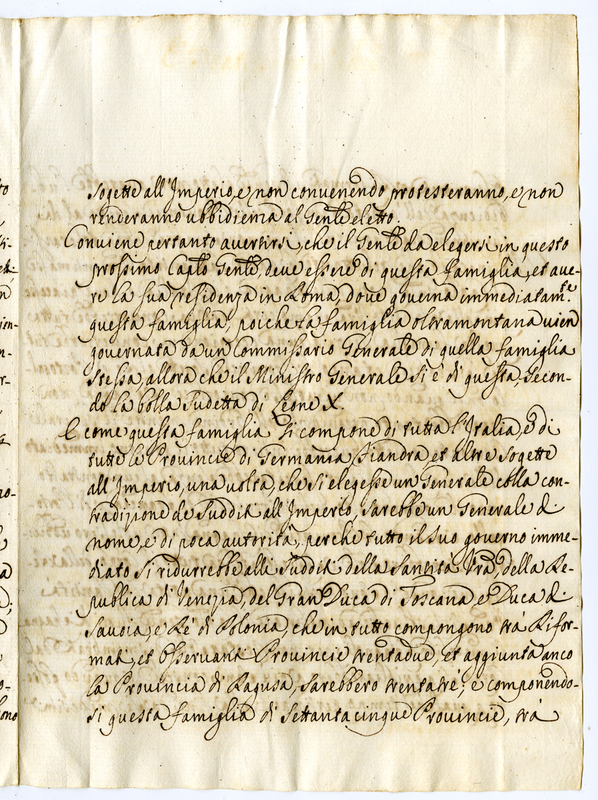 Sogette all'Imperio, e non convenendo protesteranno, e non
renderanno ubbidienza al Gen̅le eletto.
Conviene pertanto avertirsi, che il Gen̅le da elegersi in questo
prossimo Cap̅lo Gen̅le, deve essere di questa famiglia, et ave-
re la sua residenza in Roma, dove governa immediatam.te
questa famiglia, poiche la famiglia oltramontana vien
governata da un Commissario Generale di quella famiglia
stessa, allora che il Ministro Generale si è di questa, secon-
do la bolla sudetta di Leone X.
E come questa famiglia si compone di tutta l'Italia, e di
tutte le Provincie di Germania, Fiandra, et altre sogette
all'Imperio, una volta, che si elegesse un Generale colla con-
tradizione de Sudditi all'Imperio, sarebbe un Generale di
nome, e di poca autorità, perche tutto il suo governo imme-
diato si ridurrebbe alli Sudditi della Santità V̅ra, della Re-
publica di Venezia, del Gran Duca di Toscana, e Duca di
Savoia, e Rè di Polonia, che in tutto compongono trà Rifor-
mati, et Osservanti Provincie trentadue, et aggiunta anco
la Provincia di Ragusa, sarebbero trentatrè; e componendo-
si questa famiglia di Settantacinque Provincie, trà